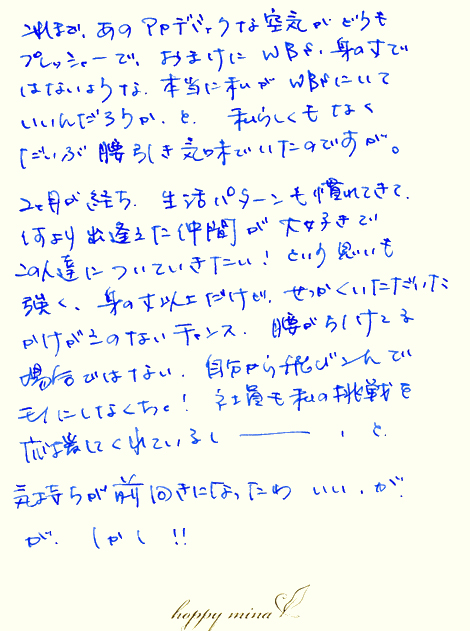 これまで、あのアカデミックな空気がどうも
プレッシャーで、おまけにWBSは、身の丈で
はないような、本当に私がWBSにいて
いいんだろうか、と、私らしくもなく
だいぶ腰引き気味でいたのですが。
2ヶ月が経ち、生活パターンも慣れてきて、
何より出逢えた仲間が大好きで
この人達についていきたい！という思いも
強く、身の丈以上だけど、せっかくいただいた
かけがえのないチャンス。腰がひけてる
場合ではない、自分から飛びこんで
モノにしなくちゃ！社員も私の挑戦を
応援してくれているし――、と、
気持ちが前向きになったわいい、が、
が、しかし!!
happy mina